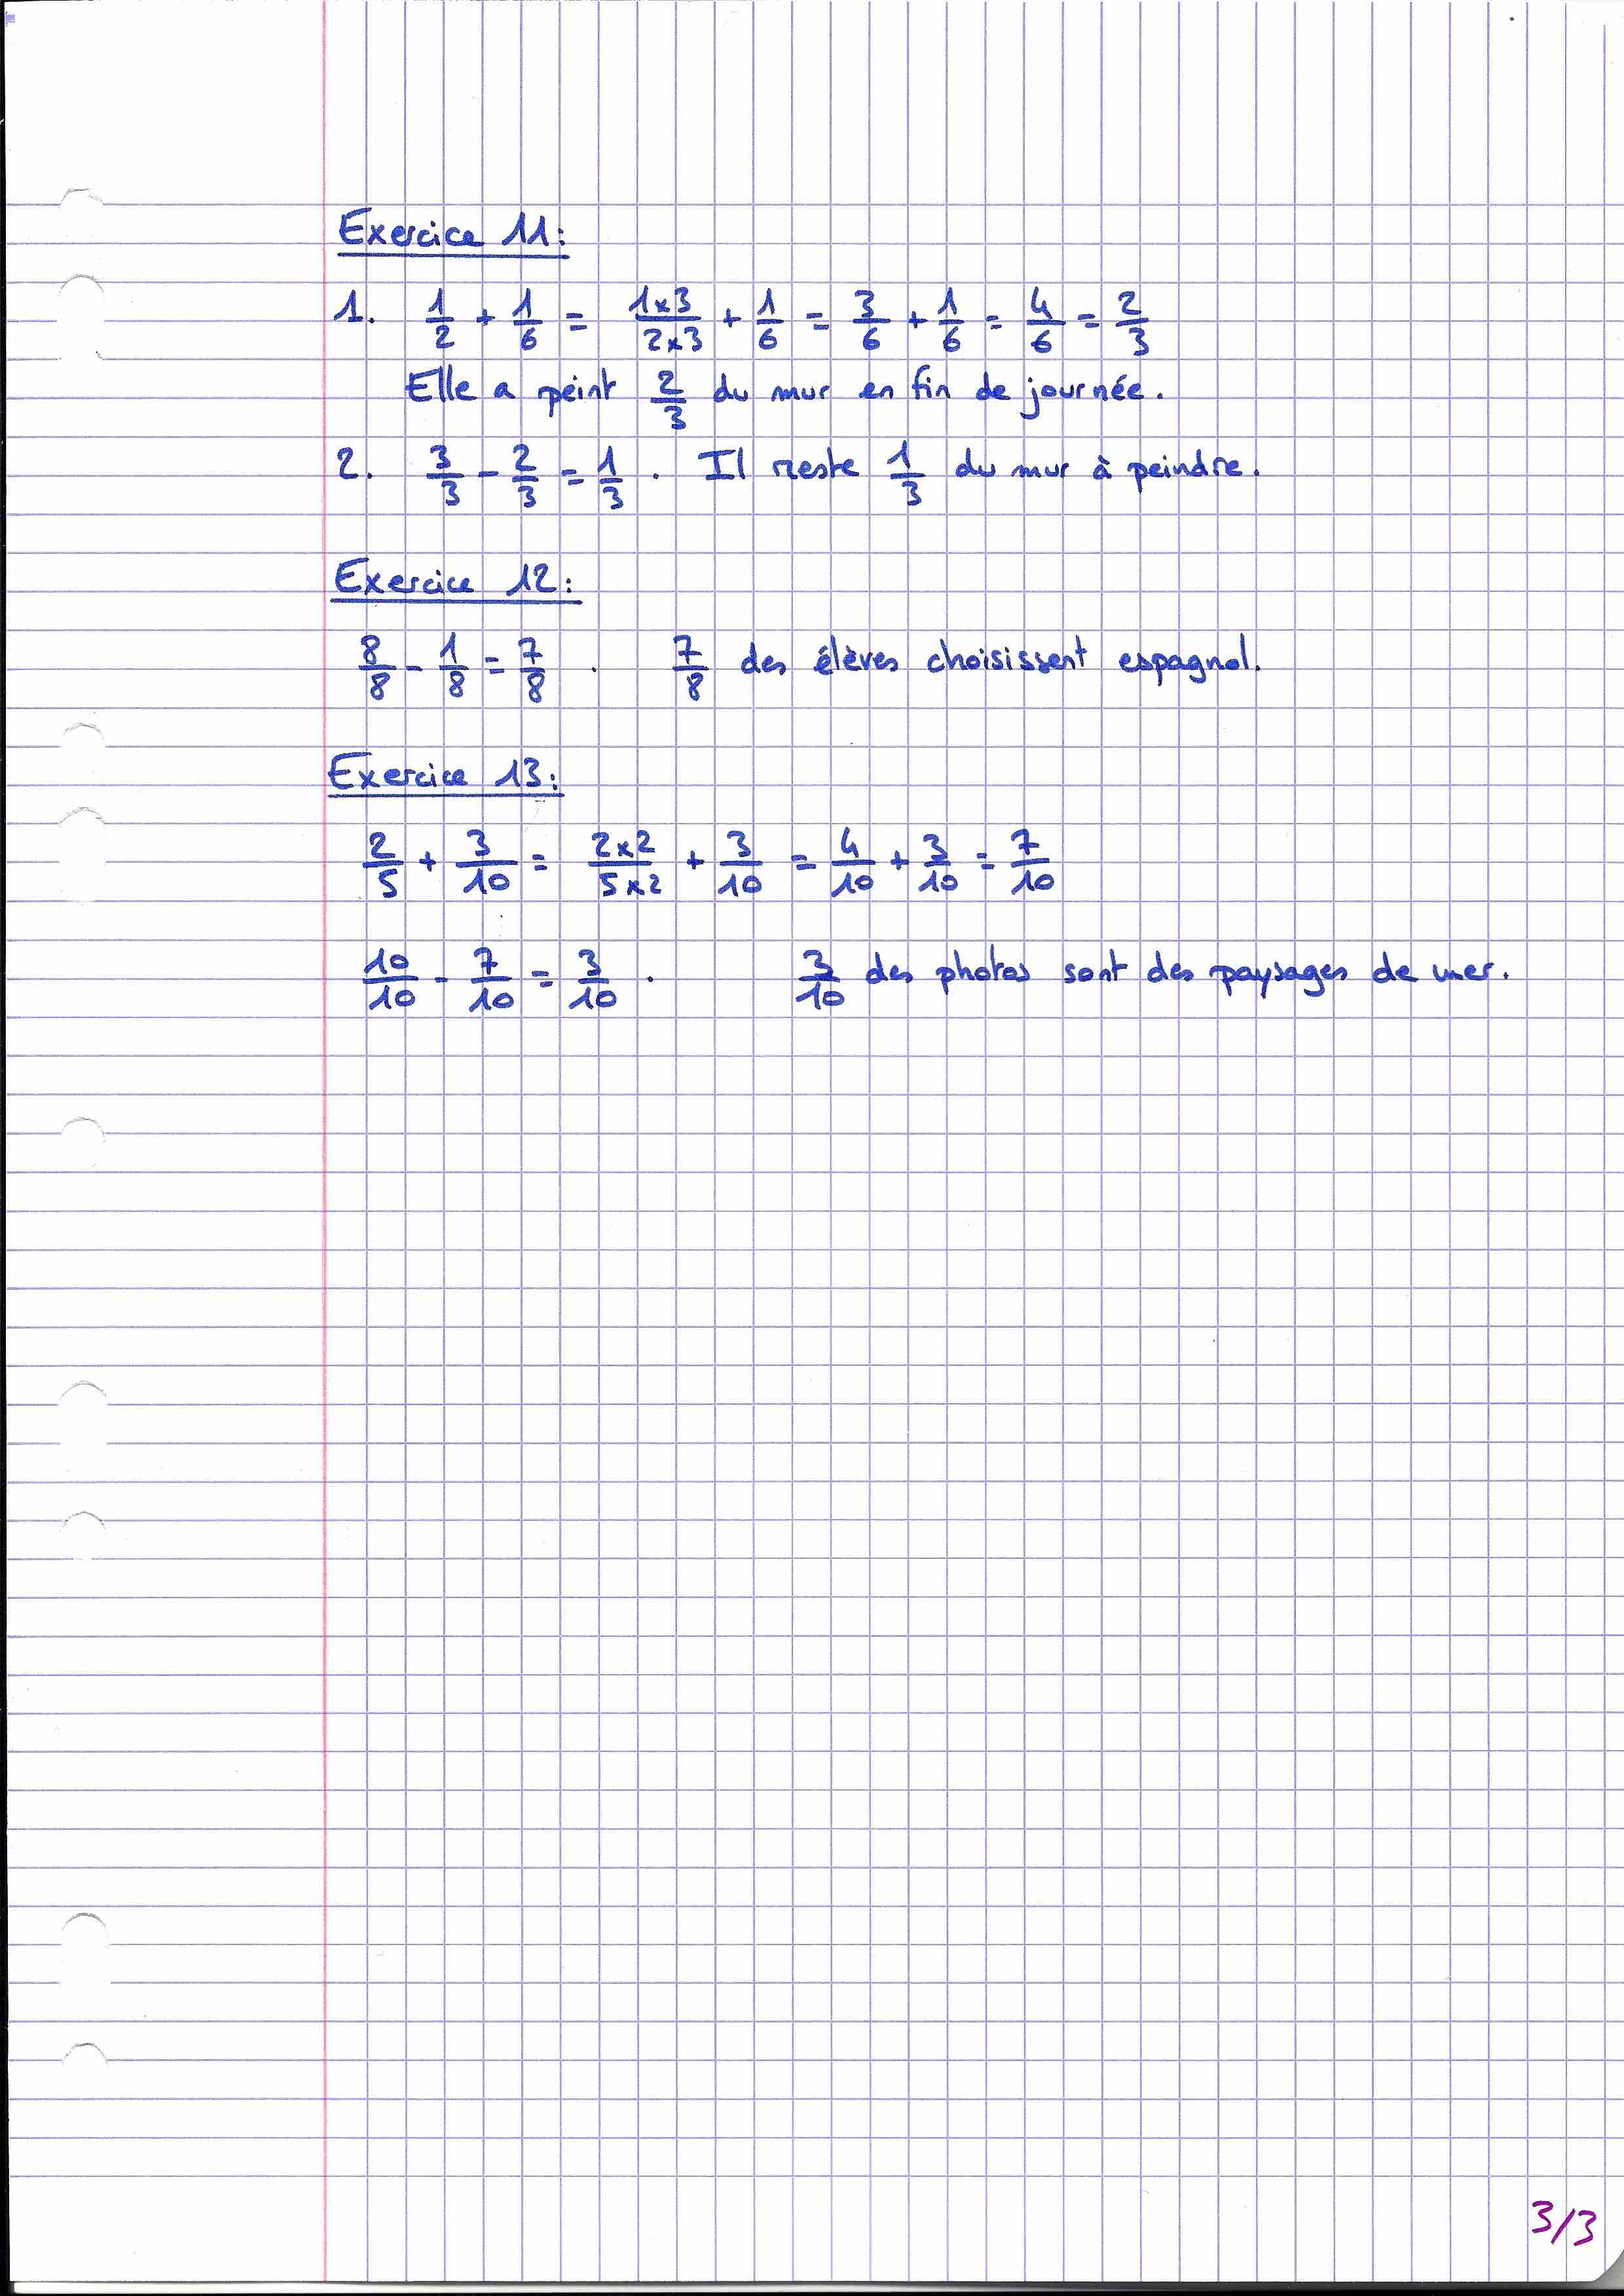 Exercice 11:
1. 1/2 + 1/6 = 1×3/2×3 + 1/6 = 3/6 + 1/6 = 4/6 = 2/3
Elle a peint 2/3 du mur en fin de journée.
2. 3/3 - 2/3 = 1/3 . Il reste 1/3 du mur à peindre.
Exercice 12:
8/8 - 1/8 = 7/8 . 7/8 des élèves choisissent espagnol.
Exercice 13:
2/5 + 3/10 = 2×2/5×2 + 3/10 = 4/10 + 3/10 = 7/10
10/10 - 7/10 = 3/10 . 3/10 des photos sont des paysages de mer.
3/3